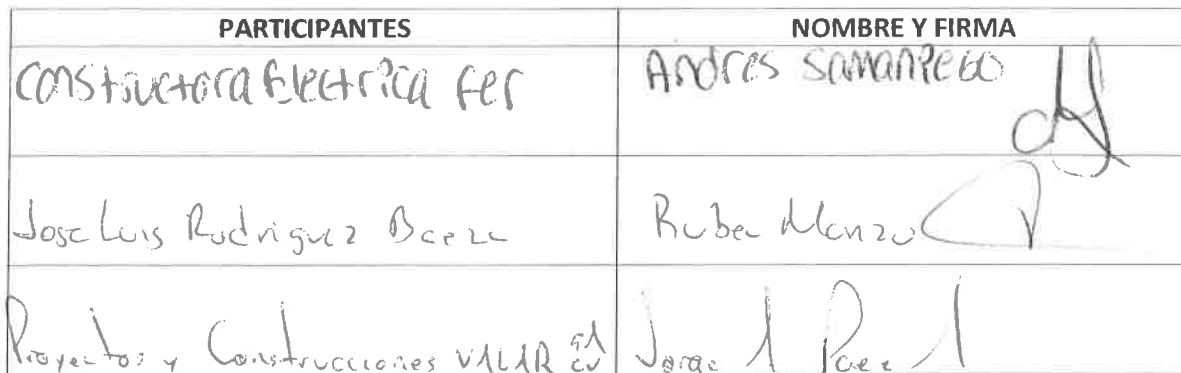 PARTICIPANTES
NOMBRE Y FIRMA
Constructora Electrica fer
Andres Samaniego
Jose Luis Rodriguez Baeza
Ruben Manzo
Proyectos y Construcciones VALAR SA CV
Jorge Paez